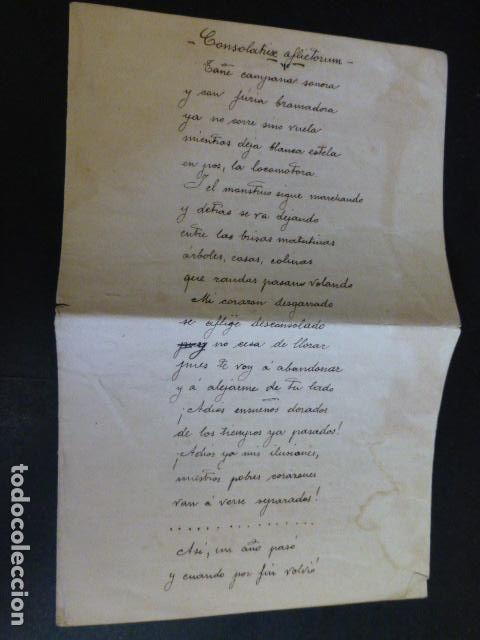 - Consolatrix aflictorum -
Tañe campana sonora
y con fúria bramadora
ya no corre sino vuela
mientras deja blanca estela
en pos, la locomotora
Y el monstruo sigue marchando
y detras se va dejando
entre las brisas matutinas
árboles, casas, colinas
que raudas pasan volando
Mi corazon desgarrado
se aflige desconsolado
no cesa de llorar
pues te voy á abandonar
y á alejarme de tu lado
¡Adios ensueños dorados
de los tiempos ya pasados!
¡Adios ya mis ilusiones,
nuestros pobres corazones
van á verse separados!
.................
Así, un año pasó
y cuando por fin volvió
todocoleccion.net